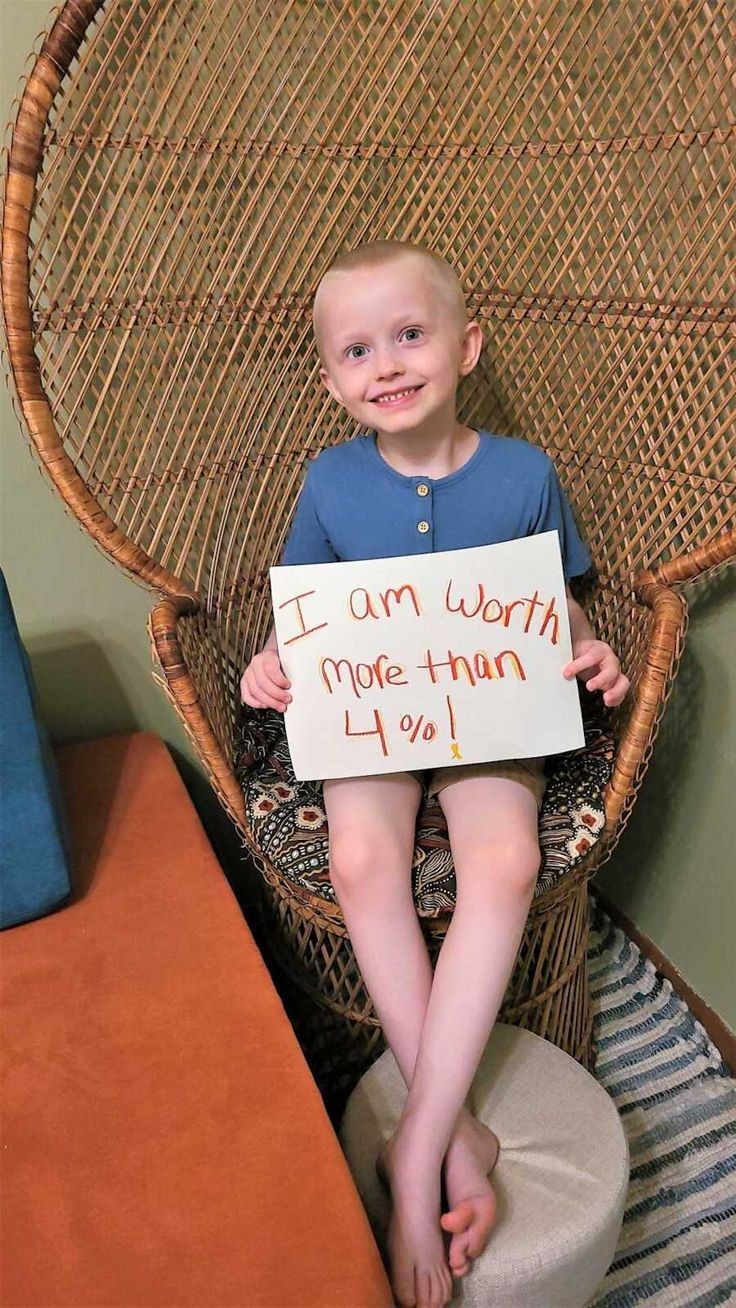 I am worth
more than
4%!